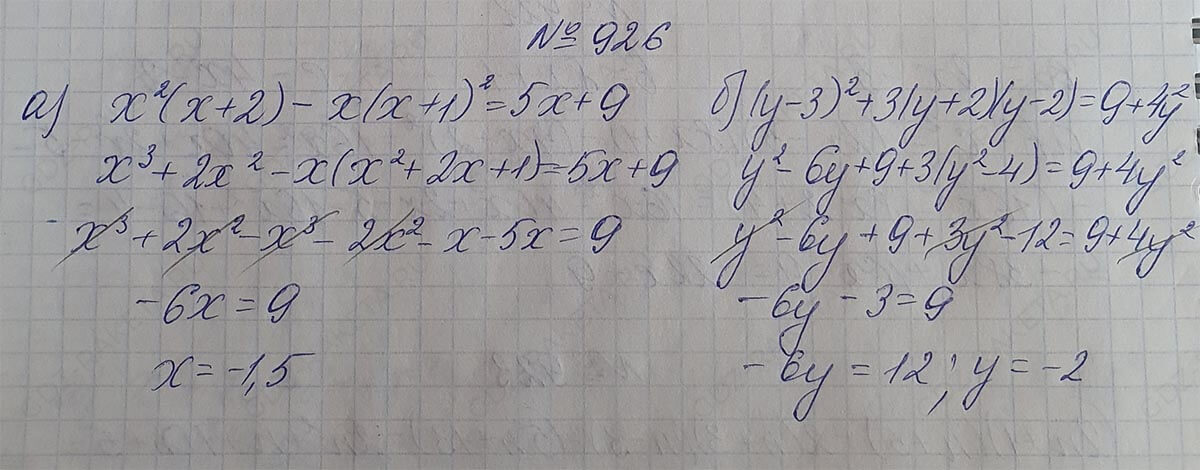 № 926
а) x²(x+2) - x(x+1)² = 5x+9
x³ + 2x² - x(x² + 2x + 1) = 5x + 9
x³ + 2x² - x³ - 2x² - x - 5x = 9
-6x = 9
x = -1,5
б) (y-3)² + 3(y+2)(y-2) = 9 + 4y²
y² - 6y + 9 + 3(y² - 4) = 9 + 4y²
y² - 6y + 9 + 3y² - 12 = 9 + 4y²
-6y - 3 = 9
-6y = 12; y = -2